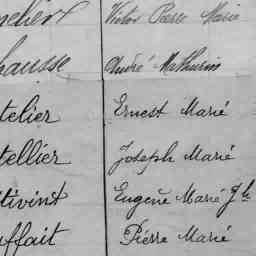 Victor Pierre Marie
hausse André Mathurin
telier Ernest Marié
tellier Joseph Marié
tivint Eugene Marié Jh
uffait Pierre Marié